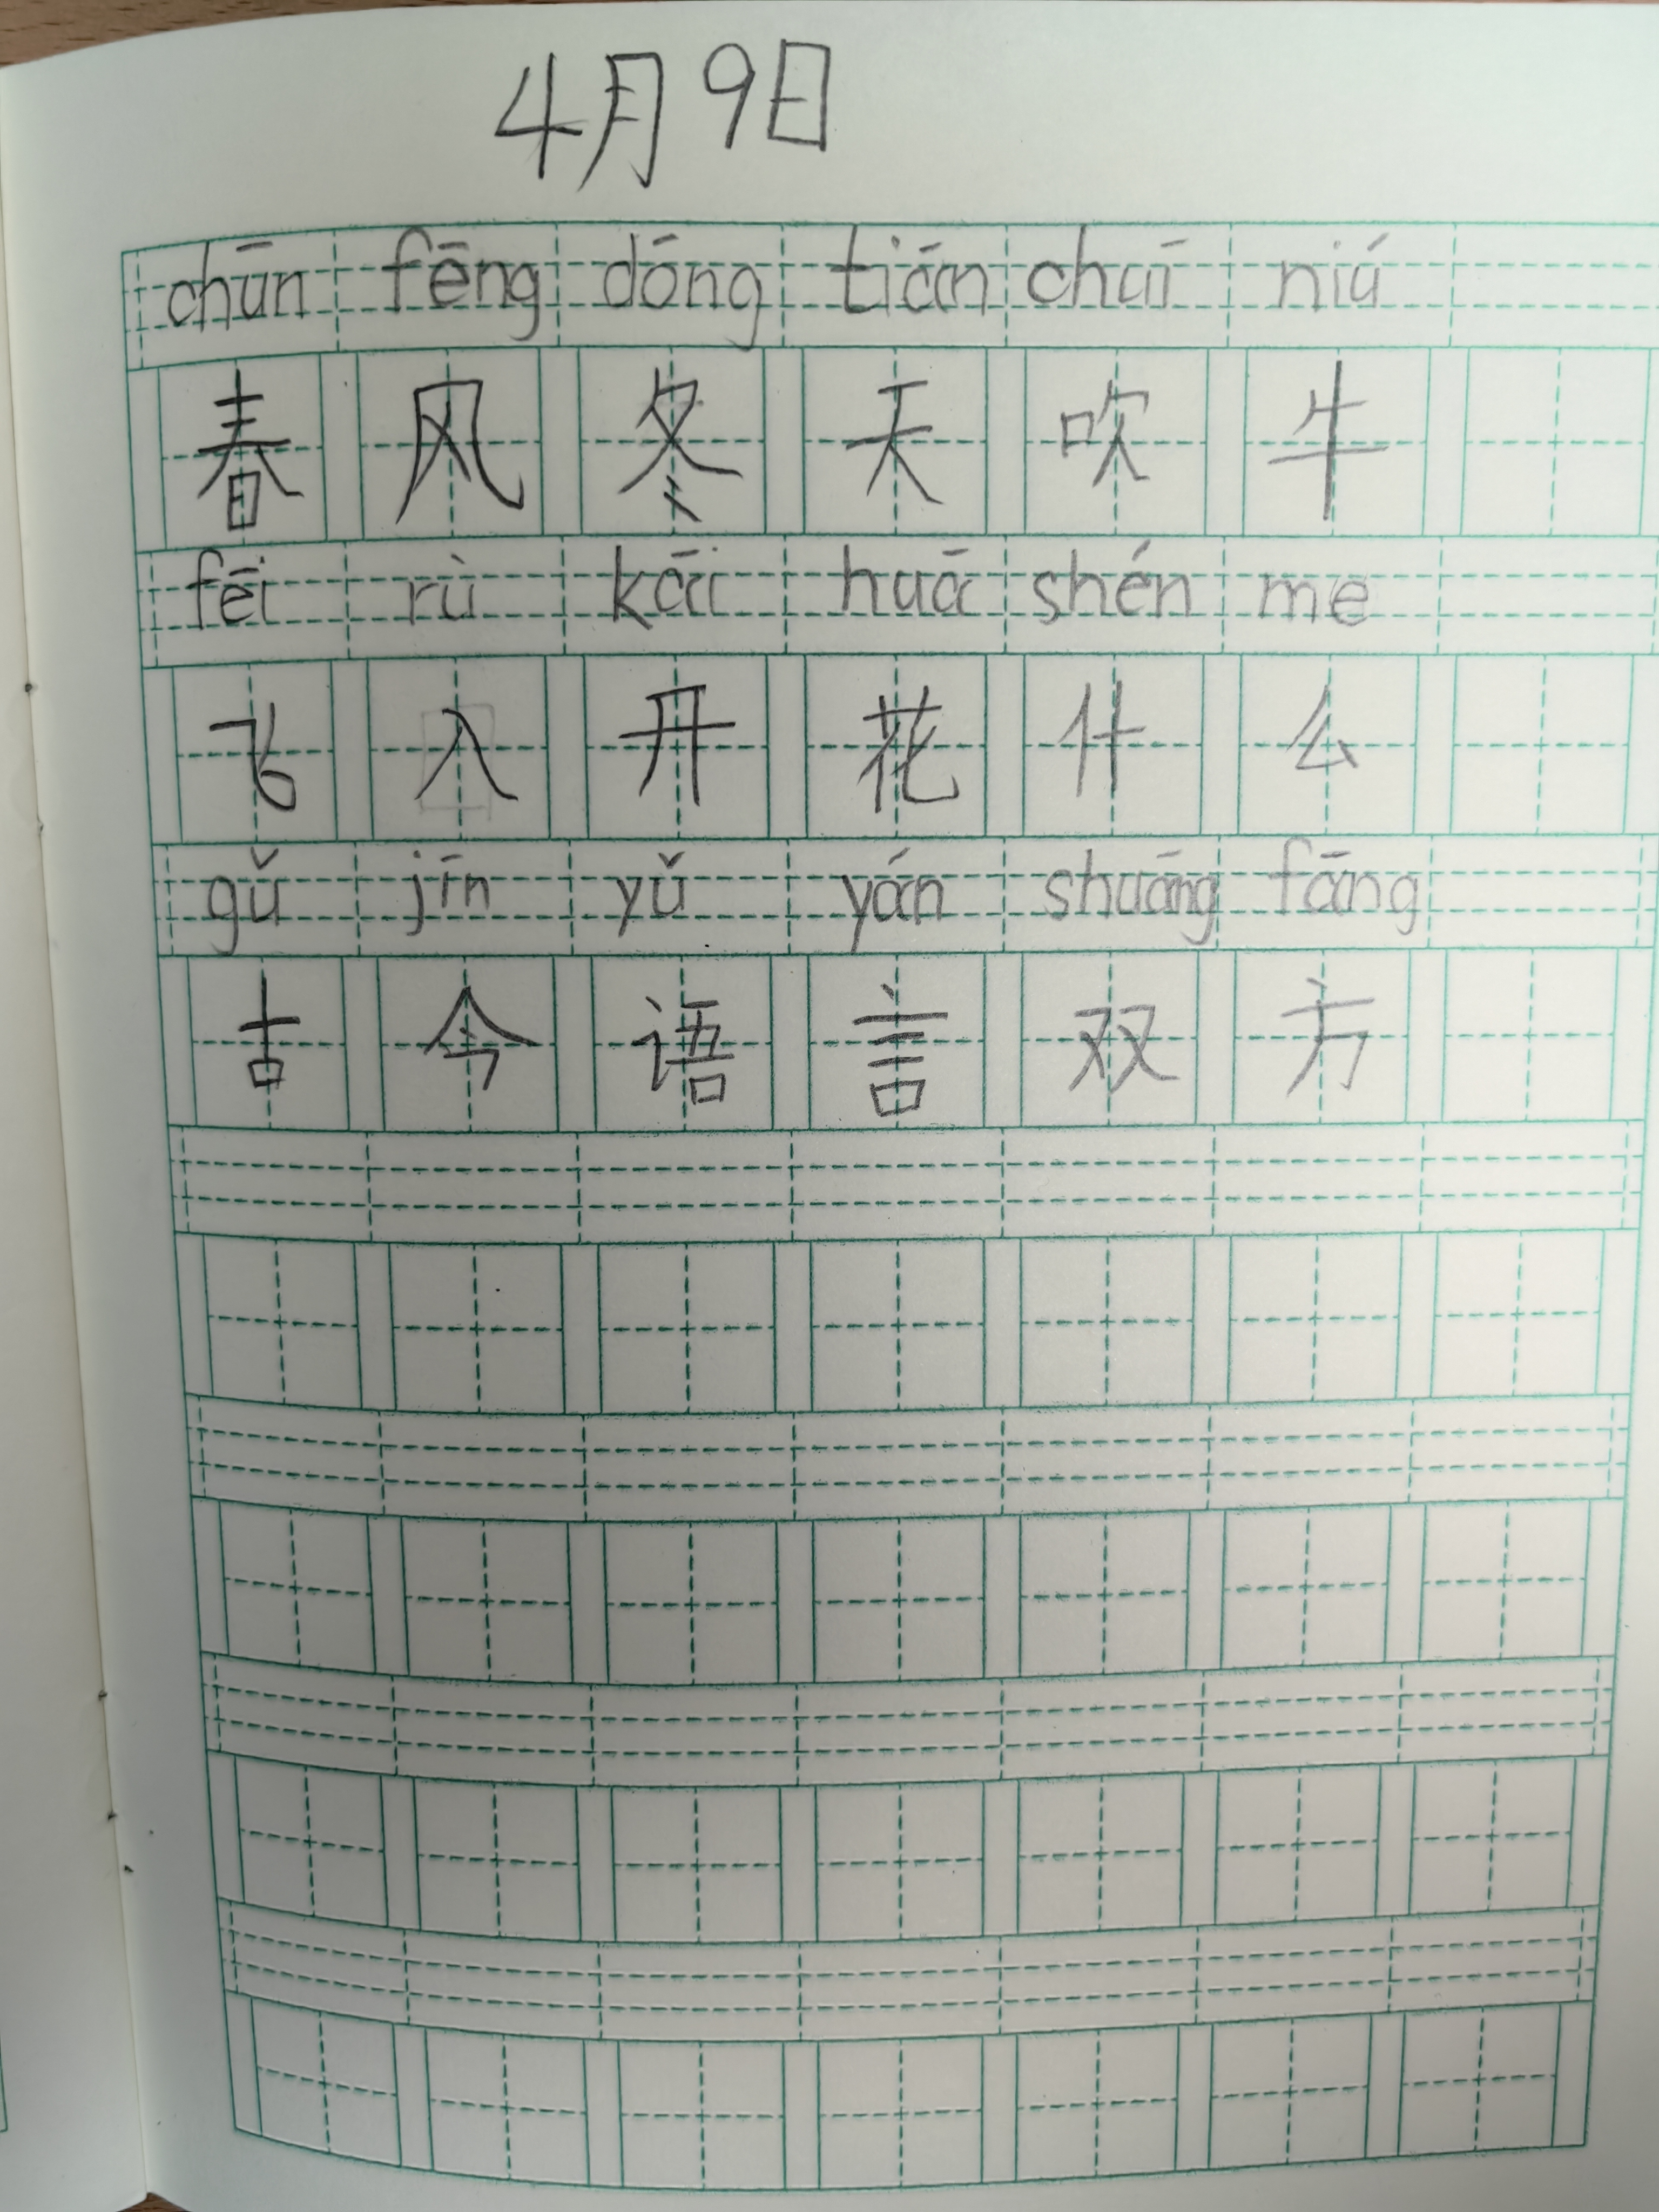 4月9日
chūn fēng dōng tiān chuī niú
春 风 冬 天 吹 牛
fēi rù kāi huā shén me
飞 入 开 花 什 么
gǔ jīn yǔ yán shuāng fāng
古 今 语 言 双 方